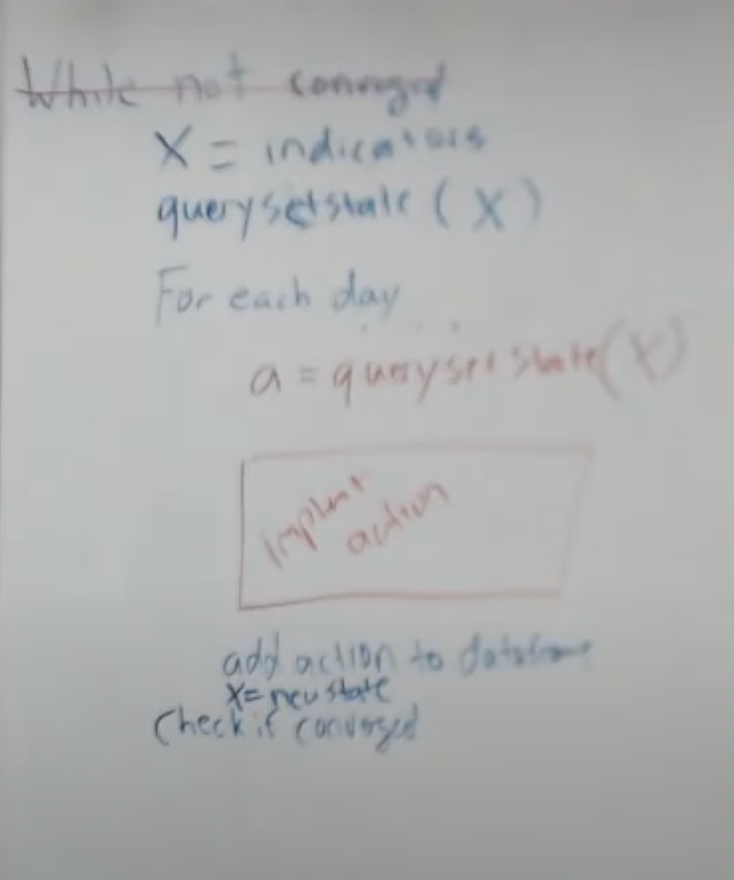 While not converged
X = indicators
querysetstate (X)
For each day
a = querysetstate(X)
implemt
action
add action to dataframe
X= new state
Check if converged